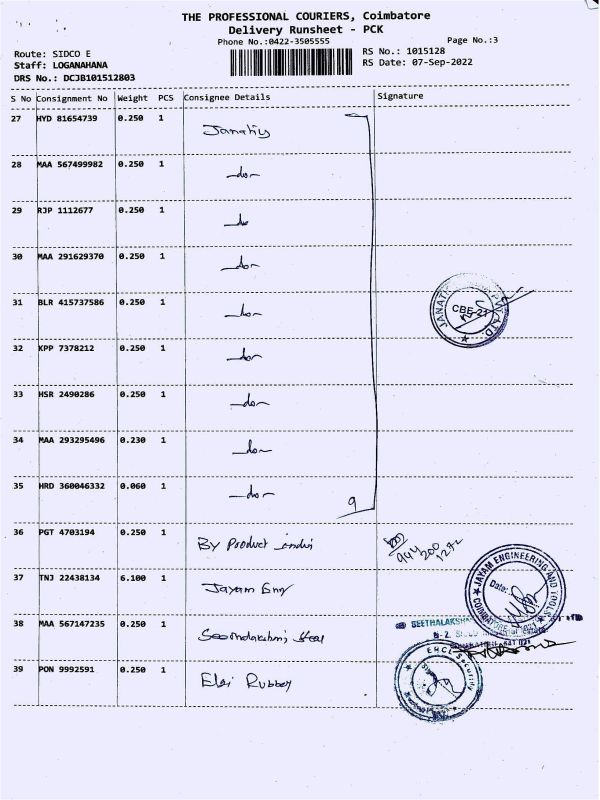 THE PROFESSIONAL COURIERS, Coimbatore
Delivery Runsheet - PCK
Phone No.:0422-3505555
Page No.:3
Route: SIDCO E
RS No.: 1015128
Staff: LOGANAHANA
RS Date: 07-Sep-2022
DRS No.: DCJB101512803
S No Consignment No Weight PCS Consignee Details Signature
27 HYD 81654739 0.250 1
28 MAA 567499982 0.250 1 -do-
29 RJP 1112677 0.250 1 -do
30 MAA 291629370 0.250 1 -do-
31 BLR 415737586 0.250 1 -do-
CBE-21
32 KPP 7378212 0.250 1 -do-
33 HSR 2490286 0.250 1 -do-
34 MAA 293295496 0.230 1 -do-
35 HRD 360046332 0.060 1 -do- 9
36 PGT 4703194 0.250 1 By Product india
JAYAM ENGINEERING AND TOOLS
Date:
COIMBATORE
37 TNJ 22438134 6.100 1 Jayam Eng
38 MAA 567147235 0.250 1 Steel
39 PON 9992591 0.250 1 Rubber
Security